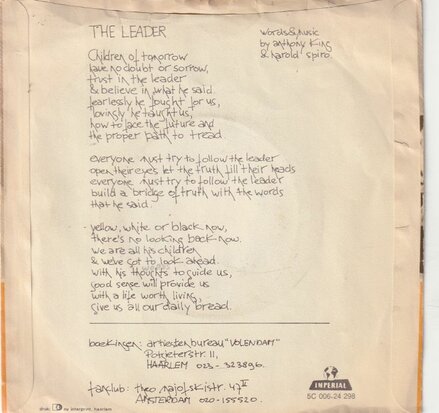 THE LEADER
words & music
by anthony King
& harold Spiro
Children of tomorrow
have no doubt or sorrow,
trust in the leader
& believe in what he said.
fearlessly he fought for us,
lovingly he taught us,
how to face the future and
the proper path to tread.
everyone must try to follow the leader
open their eyes let the truth fill their heads
everyone must try to follow the leader
build a bridge of truth with the words
that he said.
yellow, white or black now,
there's no looking back now.
we are all his children
& we've got to look ahead.
with his thoughts to guide us,
good sense will provide us
with a life worth living,
give us all our daily bread.
boekingen: artiestenbureau "VOLENDAM"
Potgieterstr. 11,
HAARLEM 023-323896.
fanclub: theo
AMSTERDAM 020-155520.
druk: interprint, haarlem
IMPERIAL
5C 006-24 298